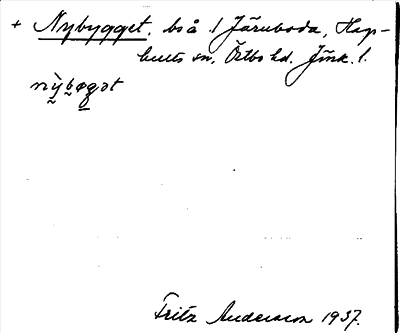 + Nybygget, bs å 1 Järnboda, Hag-
hults sn, Östbo hd. Jönk. l.
nỳbøgət
Fritz Anderson 1937.